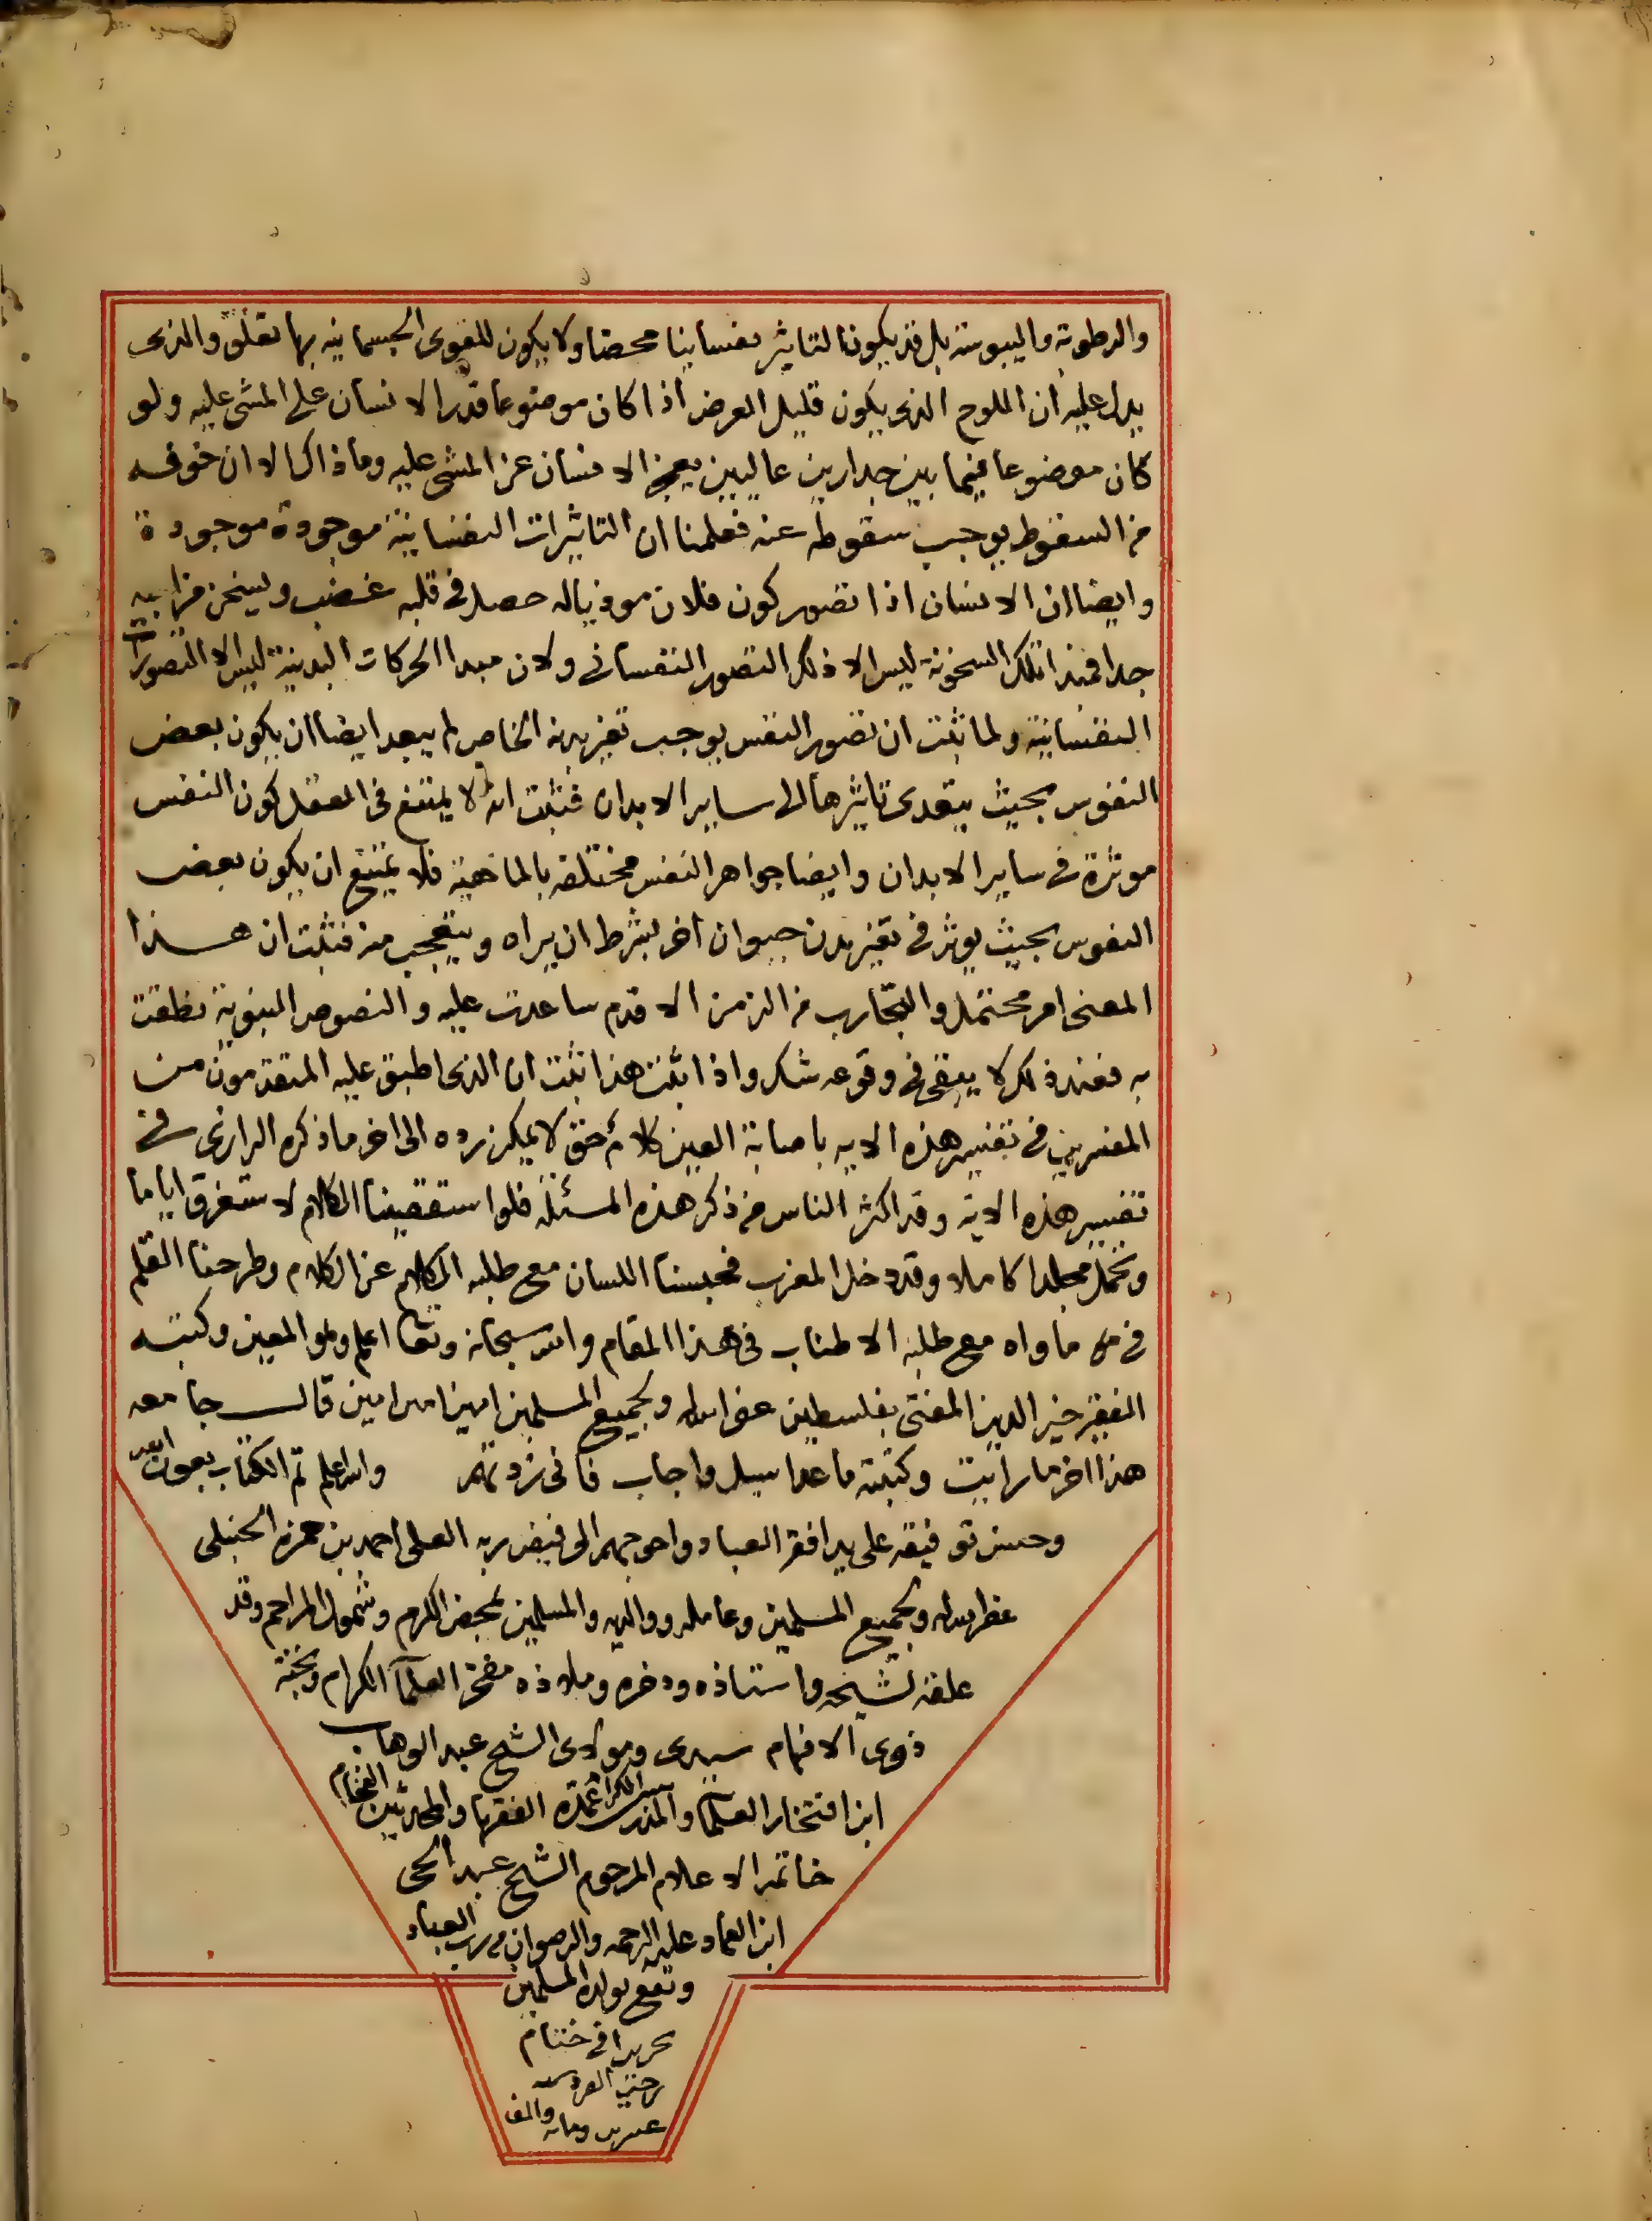 والرطوبة واليبوسة بل قد يكون التاثير نفسانيا محضا ولا يكون للقوى الجسمانيه بها تعلق والذى
يدل عليه ان اللوح الذى يكون قليل العرض اذا كان موضوعا قدر الانسان على المشى عليه ولو
كان موضوعا فيما بين جدارين عاليين يعجز الانسان عن المشى عليه وما ذاك الا ان خوفه
من السقوط يوجب سقوطه عنه فعلمنا ان التاثيرات النفسانية موجودة موجودة
وايضا ان الانسان اذا تصور كون فلان موذيا له حصل فى قلبه غضب ويسخن مزاجه
جدا فمبدا تلك السخونة ليس الا ذلك التصور النفسانى ولان مبدا الحركات البدنية ليس الا التصورات
النفسانية ولما ثبت ان تصور النفس يوجب تغير بدنه الخاص لم يبعد ايضا ان يكون بعض
النفوس بحيث يتعدى تاثيرها الى ساير الابدان فثبت انه لا يمتنع فى العقل كون النفس
موثرة فى ساير الابدان وايضا جواهر النفس مختلفه بالماهية فلا يمتنع ان يكون بعض
النفوس بحيث يوثر فى تغير بدن حيوان اخر بشرط ان يراه ويتعجب منه فثبت ان هذا
المعنى امر محتمل والتجارب من الزمن الاقدم ساعدت عليه والنصوص النبوية نطقت
به فعند ذلك لا يبقى فى وقوعه شك واذا ثبت هذا ثبت ان الذى اطبق عليه المتقدمون من
المفسرين فى تفسير هذه الايه باصابة العين كلام حق لا يمكن رده الى اخر ما ذكره الرازى فى
تفسير هذه الاية وقد اكثر الناس من ذكر هذه المسئلة فلو استقصينا الكلام لاستغرق اياما
وتحمل مجلدا كاملا وقد دخل المغرب فحبسنا اللسان مع طلبه الكلام عن الكلام وطرحنا القلم
فى ماواه مع طلبه الاطناب فى هذا المقام والله سبحانه وتعا اعلم وهو المعين وكتبه
الفقير خير الدين المفتى بفلسطين غفر الله له ولجميع المسلمين امين امين امين قال جامعه
هذا اخر ما رايت وكتبته ما عدا سيل واجاب والله اعلم تم الكتاب بعون الله
وحسن توفيقه على يد افقر العباد واحوجهم الى فيض ربه العلى احمد بن حمزه الحنبلى
غفر الله له ولجميع المسلمين وعامله ووالديه والمسلمين بمحض الكرم وشمول المراحم وقد
علقه لشيخه واستاذه وذخره وملاذه مفخر العلمآ الكرام ونخبة
ذوى الافهام سيدى ومولاى الشيخ عبد الوهاب
ابن افتخار العلما والمدرسين الكرام عمدة الفقها والمحدثين الفخام
خاتمه الاعلام المرحوم الشيخ عبد الحى
ابن العماد عليه الرحمه والرضوان من رب العباد
ونفع بولده المسلمين
تحريرا فى ختام
رجب الفرد سنه
عشرين ومايه والف